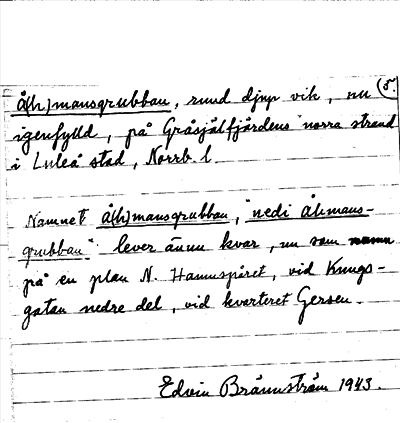 å(h)mansgrubban, rund djup vik, nu 5.
igenfylld, på Gråsjälfjärdens norra strand
i Luleå stad, Norrb. l.
Namnet å(h)mansgrubban, "nedi åhmans-
grubban" lever ännu kvar, nu som namn
på en plan N. Hamnspåret, vid Kungs-
gatan nedre del, vid kvarteret Gersen.
Edvin Brännström 1943.